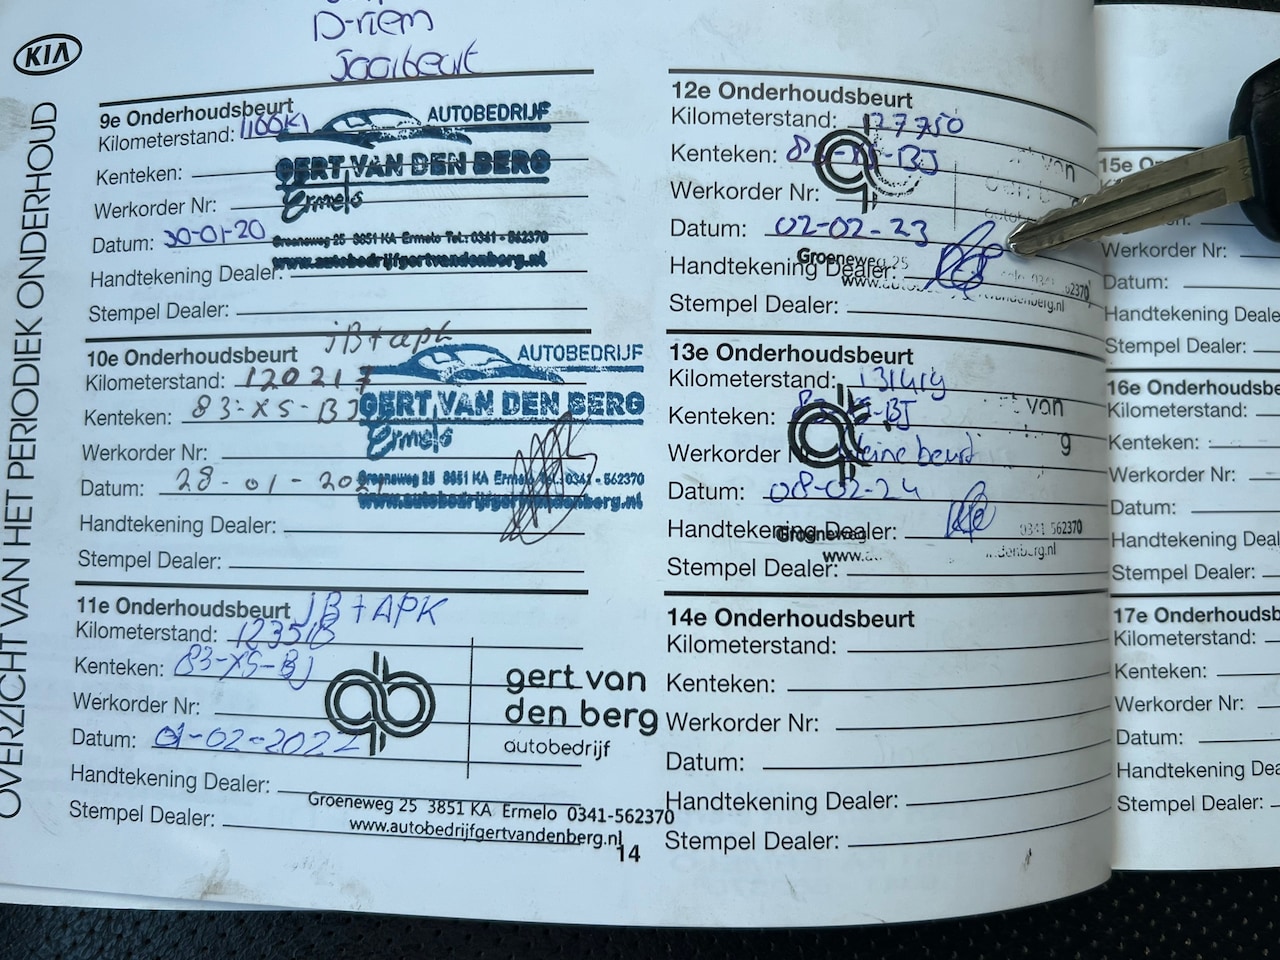 D-riem
Jaarbeurt
KIA
OVERZICHT VAN HET PERIODIEK ONDERHOUD
9e Onderhoudsbeurt
Kilometerstand:
Kenteken:
Werkorder Nr:
Datum: 30-01-20
Handtekening Dealer:
Stempel Dealer:
AUTOBEDRIJF
GERT VAN DEN BERG
Ermelo
Groeneweg 25 3851 KA Ermelo Tel.: 0341 - 562370
www.autobedrijfgertvandenberg.nl
10e Onderhoudsbeurt JB + apk
Kilometerstand: 120217
Kenteken: 83-XS-BJ
Werkorder Nr:
Datum: 28-01-
Handtekening Dealer:
Stempel Dealer:
AUTOBEDRIJF
GERT VAN DEN BERG
Ermelo
Groeneweg 25 3851 KA Ermelo Tel.: 0341 - 562370
www.autobedrijfgertvandenberg.nl
11e Onderhoudsbeurt JB + APK
Kilometerstand: 123518
Kenteken: 83-XS-BJ
Werkorder Nr:
Datum: 01-02-2022
Handtekening Dealer:
Stempel Dealer:
gert van
den berg
autobedrijf
Groeneweg 25 3851 KA Ermelo 0341-562370
www.autobedrijfgertvandenberg.nl
14
12e Onderhoudsbeurt
Kilometerstand: 127750
Kenteken:
Werkorder Nr:
Datum: 02-02-23
Handtekening Dealer:
Stempel Dealer:
Groeneweg 25
13e Onderhoudsbeurt
Kilometerstand: 131419
Kenteken:
Werkorder
Datum: 08-02-24
Handtekening Dealer:
Stempel Dealer:
van
Groeneweg
0341 562370
14e Onderhoudsbeurt
Kilometerstand:
Kenteken:
Werkorder Nr:
Datum:
Handtekening Dealer:
Stempel Dealer:
15e
Werkorder Nr:
Datum:
Handtekening Deale
Stempel Dealer:
16e Onderhoudsbe
Kilometerstand:
Kenteken:
Werkorder Nr:
Datum:
Handtekening Deale
Stempel Dealer:
17e Onderhoudsb
Kilometerstand:
Kenteken:
Werkorder Nr:
Datum:
Handtekening Dea
Stempel Dealer: